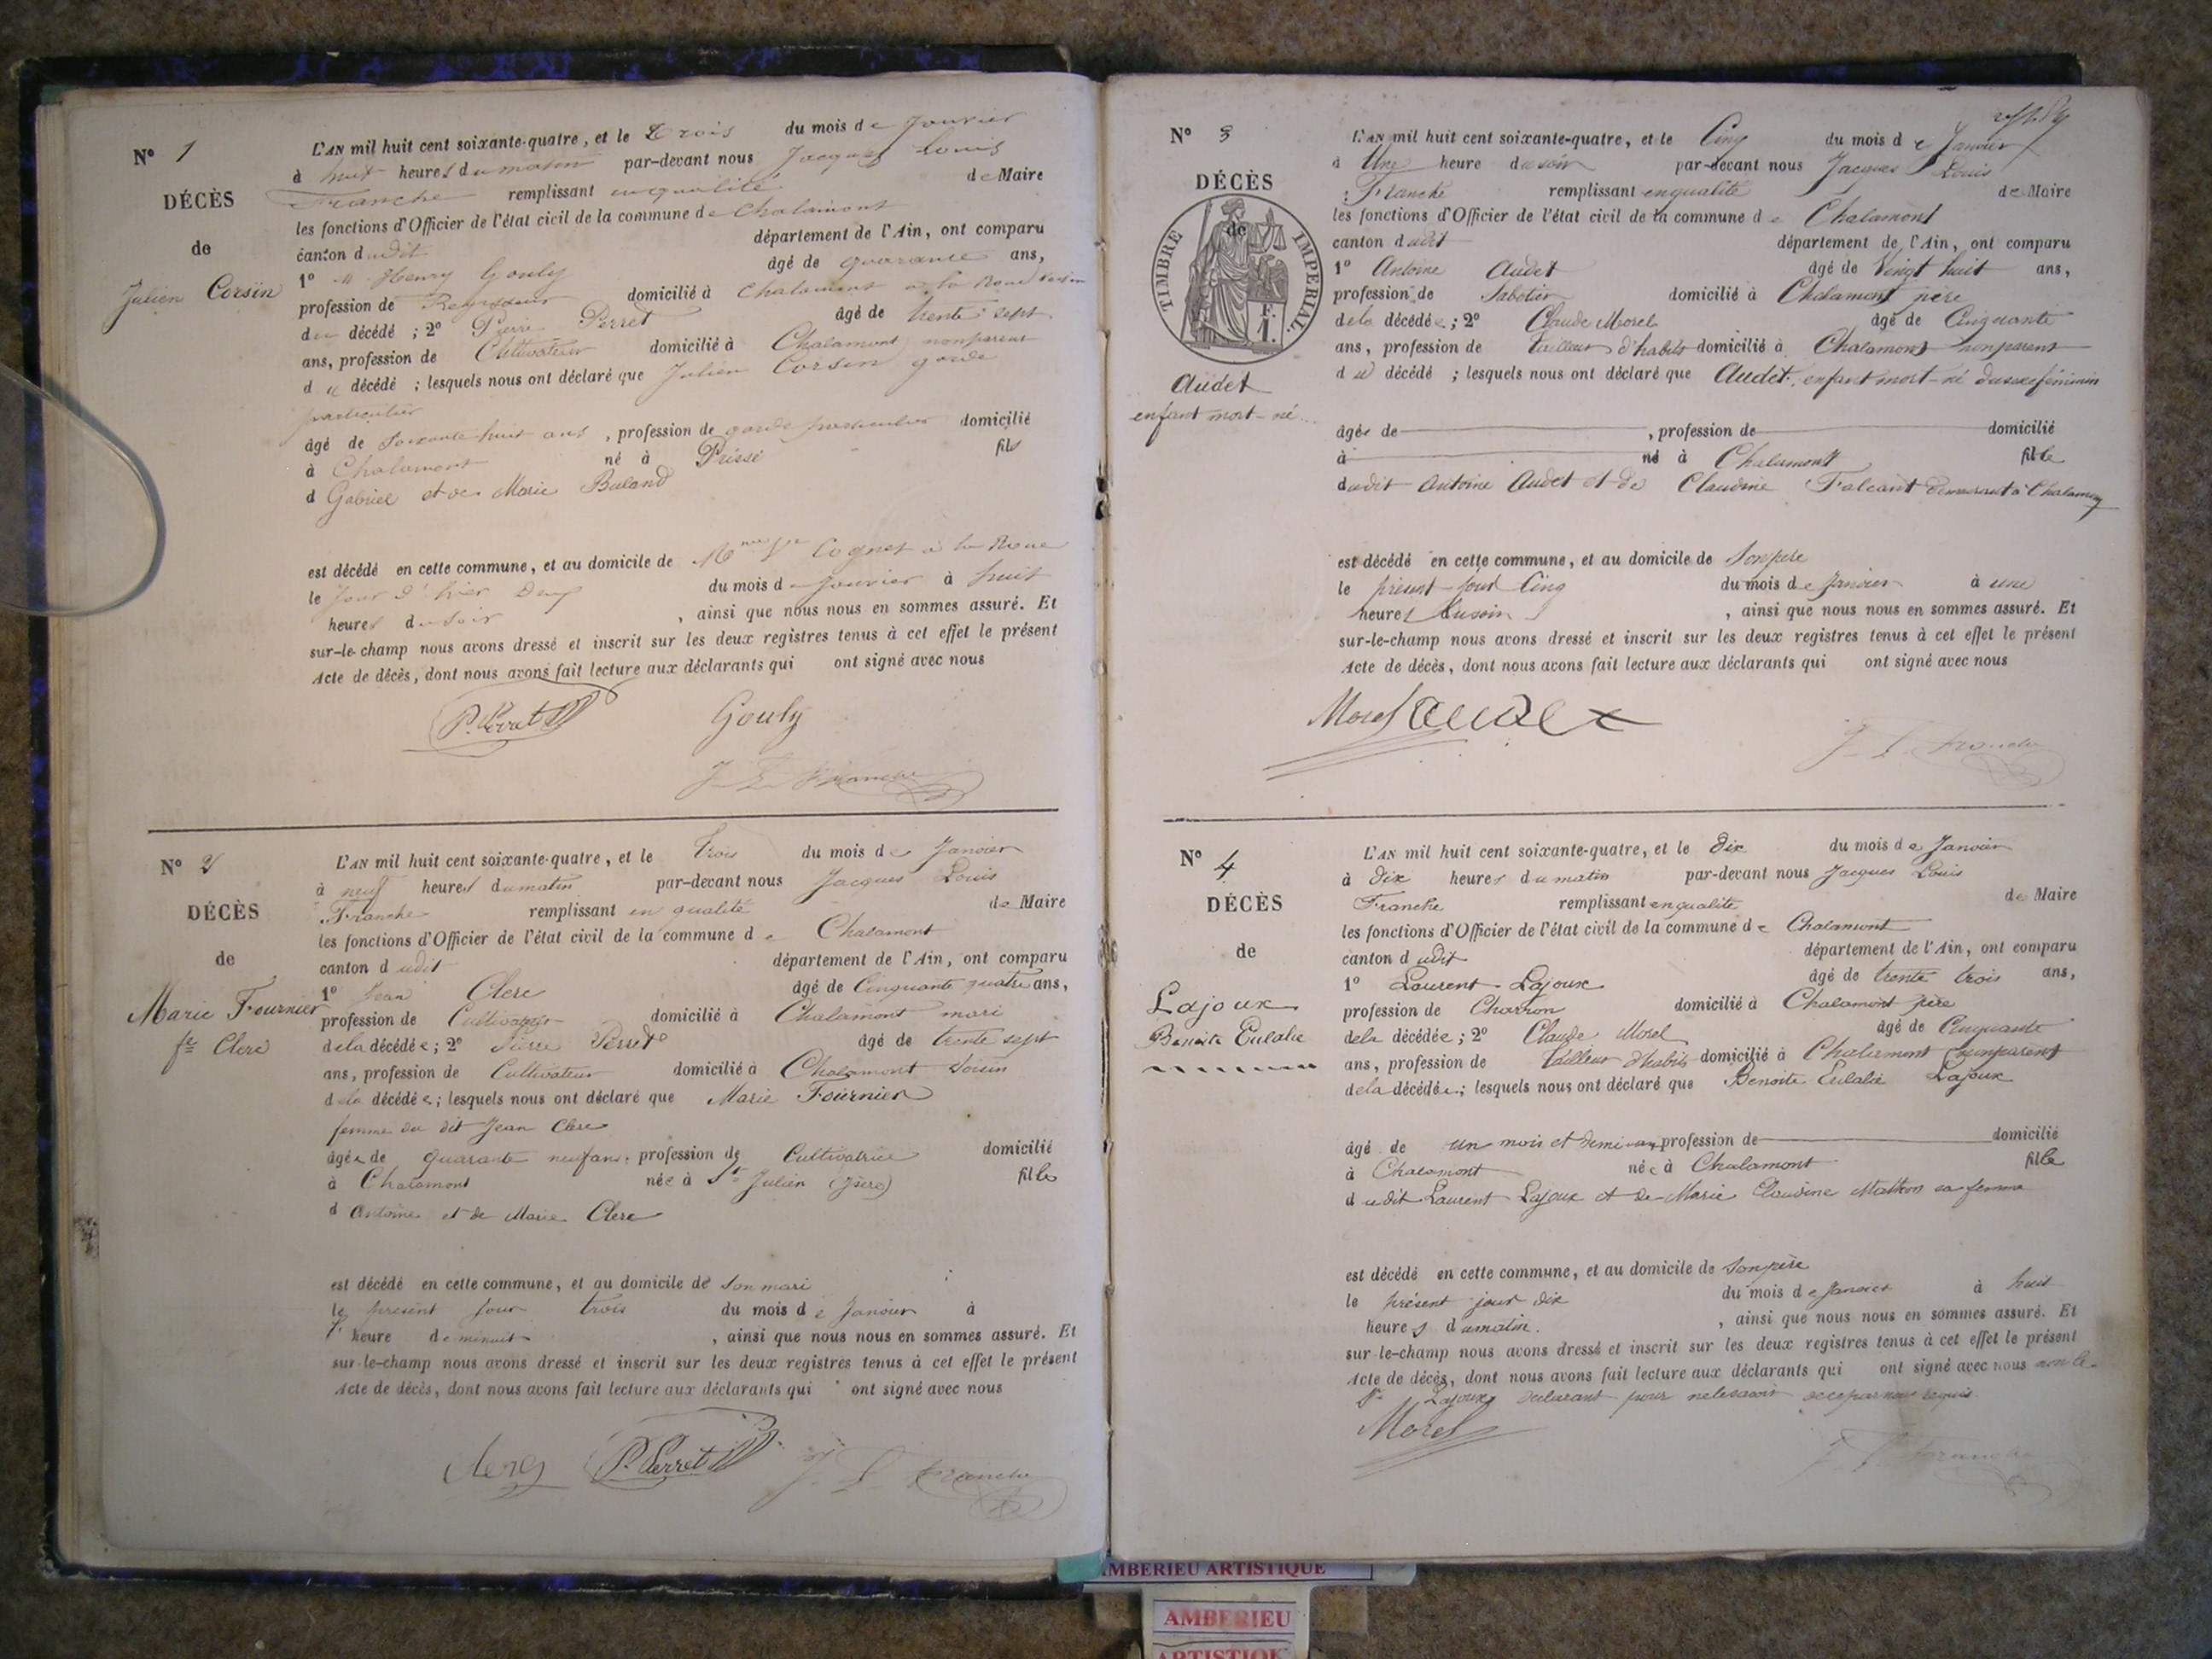 N° 1
DÉCÈS
de
Julien Corsin
L'AN mil huit cent soixante-quatre, et le Trois du mois de Janvier
à huit heures du matin par-devant nous Jacques Louis
Franche remplissant en qualité de Maire
les fonctions d'Officier de l'état civil de la commune de Chalamont
canton dudit département de l'Ain, ont comparu
1° Henry Gouly âgé de quarante ans,
profession de Régisseur domicilié à Chalamont à la Roue
du décédé ; 2° Pierre Perret âgé de trente sept
ans, profession de Cultivateur domicilié à Chalamont non parent
du décédé ; lesquels nous ont déclaré que Julien Corsin garde
particulier
âgé de soixante huit ans, profession de garde particulier domicilié
à Chalamont né à Prissé fils
d Gabriel et de Marie Buland
est décédé en cette commune, et au domicile de Mme Ve Cognet à la Roue
le jour d'hier Deux du mois de Janvier à huit
heures du soir, ainsi que nous nous en sommes assuré. Et
sur-le-champ nous avons dressé et inscrit sur les deux registres tenus à cet effet le présent
Acte de décès, dont nous avons fait lecture aux déclarants qui ont signé avec nous
P. Perret Gouly
J L Franche
N° 2
DÉCÈS
de
Marie Fournier
fe Clerc
L'AN mil huit cent soixante-quatre, et le trois du mois de Janvier
à neuf heures du matin par-devant nous Jacques Louis
Franche remplissant en qualité de Maire
les fonctions d'Officier de l'état civil de la commune de Chalamont
canton dudit département de l'Ain, ont comparu
1° Jean Clerc âgé de Cinquante quatre ans,
profession de Cultivateur domicilié à Chalamont mari
de la décédée ; 2° Pierre Perret âgé de trente sept
ans, profession de Cultivateur domicilié à Chalamont voisin
de la décédée ; lesquels nous ont déclaré que Marie Fournier
femme du dit Jean Clerc
âgée de quarante neuf ans, profession de Cultivatrice domicilié
à Chalamont née à St Julien (Isère) fille
d Antoine et de Marie Clerc
est décédé en cette commune, et au domicile de son mari
le présent jour trois du mois de Janvier à
heure de minuit, ainsi que nous nous en sommes assuré. Et
sur-le-champ nous avons dressé et inscrit sur les deux registres tenus à cet effet le présent
Acte de décès, dont nous avons fait lecture aux déclarants qui ont signé avec nous
Clerc P. Perret J L Franche
N° 3
DÉCÈS
de
TIMBRE IMPÉRIAL.
F. 1.
Audet
enfant mort-né
L'AN mil huit cent soixante-quatre, et le Cinq du mois de Janvier
à Une heure du soir par-devant nous Jacques Louis
Franche remplissant en qualité de Maire
les fonctions d'Officier de l'état civil de la commune de Chalamont
canton dudit département de l'Ain, ont comparu
1° Antoine Audet âgé de Vingt huit ans,
profession de Sabotier domicilié à Chalamont père
de la décédée ; 2° Claude Morel âgé de Cinquante
ans, profession de tailleur d'habits domicilié à Chalamont non parent
du décédé ; lesquels nous ont déclaré que Audet, enfant mort-né du sexe féminin
âgée de , profession de domicilié
à né à Chalamont fille
dudit Antoine Audet et de Claudine Falcant demeurant à Chalamont
est décédé en cette commune, et au domicile de son père
le présent jour Cinq du mois de Janvier à une
heures du soir, ainsi que nous nous en sommes assuré. Et
sur-le-champ nous avons dressé et inscrit sur les deux registres tenus à cet effet le présent
Acte de décès, dont nous avons fait lecture aux déclarants qui ont signé avec nous
Morel Audet
J L Franche
N° 4
DÉCÈS
de
Lajoux
Benoite Eulalie
L'AN mil huit cent soixante-quatre, et le Dix du mois de Janvier
à Dix heures du matin par-devant nous Jacques Louis
Franche remplissant en qualité de Maire
les fonctions d'Officier de l'état civil de la commune de Chalamont
canton dudit département de l'Ain, ont comparu
1° Laurent Lajoux âgé de trente trois ans,
profession de Charron domicilié à Chalamont père
de la décédée ; 2° Claude Morel âgé de Cinquante
ans, profession de tailleur d'habits domicilié à Chalamont non parent
de la décédée ; lesquels nous ont déclaré que Benoite Eulalie Lajoux
âgé de un mois et demi profession de domicilié
à Chalamont née à Chalamont fille
dudit Laurent Lajoux et de Marie Claudine sa femme
est décédé en cette commune, et au domicile de son père
le présent jour dix du mois de Janvier à huit
heures du matin, ainsi que nous nous en sommes assuré. Et
sur-le-champ nous avons dressé et inscrit sur les deux registres tenus à cet effet le présent
Acte de décès, dont nous avons fait lecture aux déclarants qui ont signé avec nous non le
Sr Lajoux déclarant pour ne le savoir de ce par nous requis
Morel
J L Franche
AMBERIEU ARTISTIQUE
AMBERIEU
ARTISTIQUE